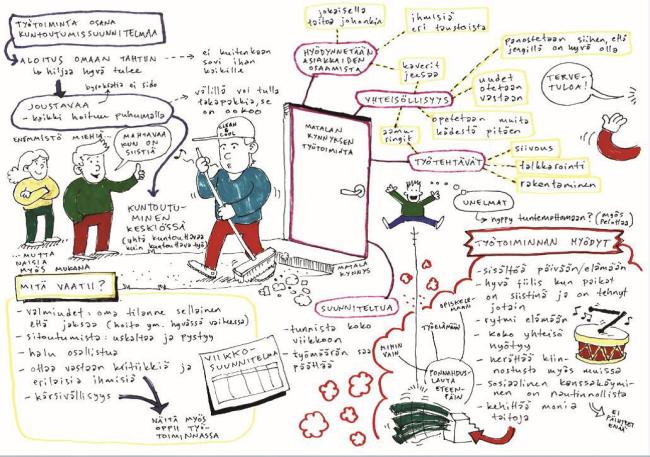 TYÖTOIMINTA OSANA
KUNTOUTUMISSUUNNITELMAA
ALOITUS OMAAN TAHTIIN
↳ hiljaa hyvä tulee
ei kuitenkaan
sovi ihan
kaikille
byrokratia ei sido
JOUSTAVAA
- kaikki hoituu puhumalla
välillä voi tulla
takapakkia, se
on ookoo
ENEMMISTÖ MIEHIÄ
MAHTAVAA
KUN ON
SIISTIÄ
...MUTTA
NAISIA
MYÖS MUKANA
CLEAN
& COOL
KUNTOUTU-
MINEN
KESKIÖSSÄ
(yhtä kuntouttavaa
kuin kuntouttava työ)
jokaisella
taitoa johonkin
HYÖDYNNETÄÄN
ASIAKKAIDEN
OSAAMISTA
ihmisiä
eri taustoista
kaverit
jeesaa
YHTEISÖLLISYYS
panostetaan siihen, että
jengillä on hyvä olla
uudet
otetaan
vastaan
opetetaan muita
kädestä pitäen
aamu-
ringit
TERVE-
TULOA!
MATALAN
KYNNYKSEN
TYÖTOIMINTA
TYÖTEHTÄVÄT
siivous
talkkarointi
rakentaminen
MATALA
KYNNYS
UNELMAT
→ hyppy tuntemattomaan? (myös pelottaa)
SUUNNITELTUA
- tunnista koko
viikkoon
- työmäärän saa
päättää
VIIKKO-
SUUNNITELMA
MITÄ VAATII?
- valmiudet: oma tilanne sellainen
että jaksaa (hoito ym. hyvässä vaiheessa)
- sitoutumista: uskaltaa ja pystyy
- halu osallistua
- ottaa vastaan kritiikkiä ja
erilaisia ihmisiä
- kärsivällisyys
NÄITÄ MYÖS
OPPII TYÖ-
TOIMINNASSA
OPISKELE-
MAAN
TYÖELÄMÄÄN
MIHIN
VAIN
PONNAHDUS-
LAUTA
ETEEN-
PÄIN
TYÖTOIMINNAN HYÖDYT
- sisältöä päivään/elämään
- hyvä fiilis kun paikat
on siistinä ja on tehnyt
jotain
- rytmi elämään
- koko yhteisö
hyötyy
- herättää kiin-
nostusta myös muissa
- sosiaalinen kanssakäymi-
nen on nautinnollista
- kehittää monia
taitoja
EI
PÄIHTEET
ENÄÄ